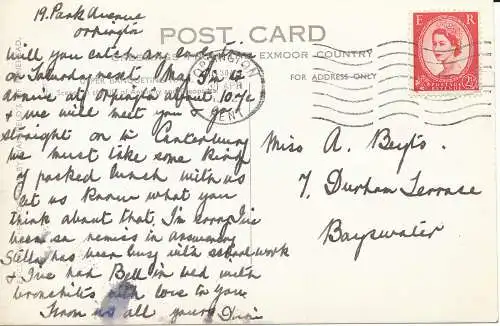 19. Park Avenue
Orpington
POST CARD
EXMOOR COUNTRY
FOR ADDRESS ONLY
E R
POSTAGE REVENUE
2½D
ORPINGTON
KENT
Will you catch any early train
on Saturday next May 9th
arrive at Orpington about 10.
& we will meet you & go
straight on to Canterbury
we must take some kind
of packed lunch with us
let us know what you
think about that, I'm sorry I've
been so remiss in answering
Stella has been busy with school work
& I've had Bell in bed with
bronchitis with love to you
from us all yours
Miss A. Beyts.
7, Durham Terrace
Bayswater